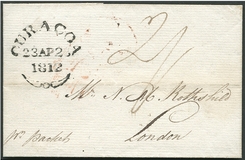 CURAÇOA
23AP23
1812
2/
Mr. N. M. Rothschild
London
pr. Packet